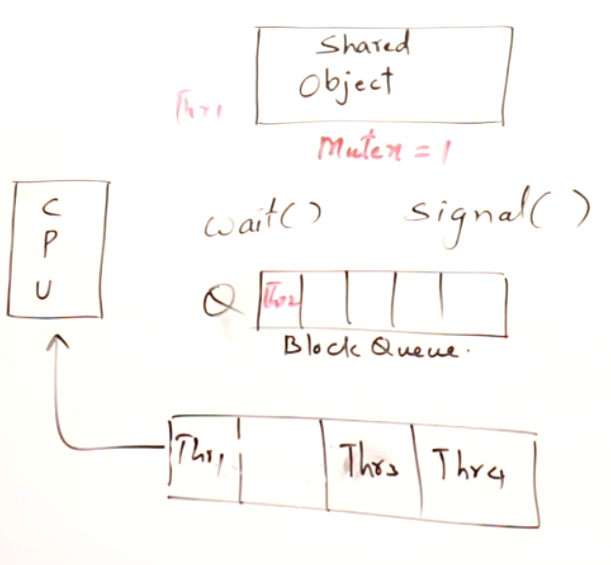 Shared
Object
Thr1
Mutex = 1
C
P
U
wait()
signal()
Q
Thr2
Block Queue.
Thr1
Thr3
Thr4